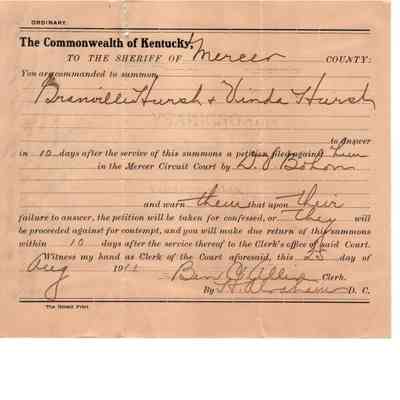 ORDINARY.
The Commonwealth of Kentucky,
TO THE SHERIFF OF Mercer COUNTY:
You are commanded to summon
Granville Hursh & Vinda Hursh
to answer
in 10 days after the service of this summons a petition filed against him
in the Mercer Circuit Court by D. J. Bohon
and warn them that upon their
failure to answer, the petition will be taken for confessed, or they will
be proceeded against for contempt, and you will make due return of this summons
within 10 days after the service thereof to the Clerk's office of said Court.
Witness my hand as Clerk of the Court aforesaid, this 25 day of
Aug 191 Ben C Allin Clerk.
By D. C.
The Herald Print